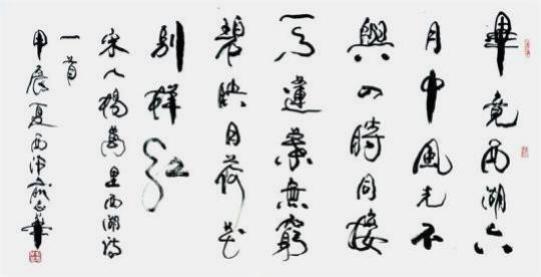 畢竟西湖六
月中風光不
與四時同接
天蓮葉無窮
碧映日荷花
別樣紅
宋人楊萬里西湖詩
一首
甲辰夏西